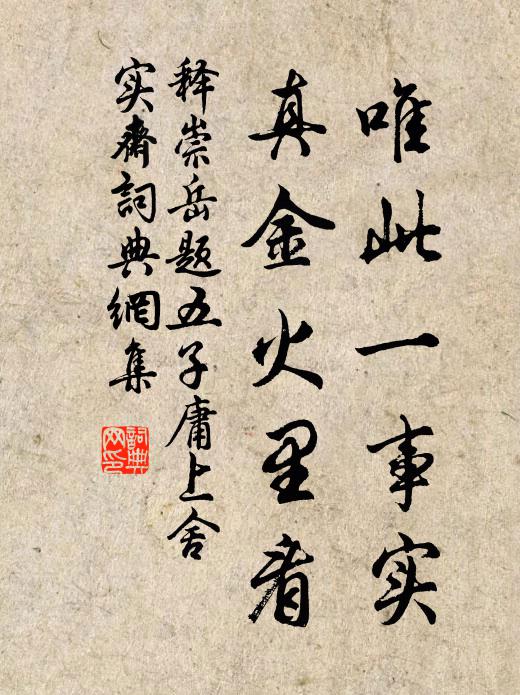 唯此一事实
真金火里看
释崇岳题五子庸上舍
实斋詞典網集
詞典网印